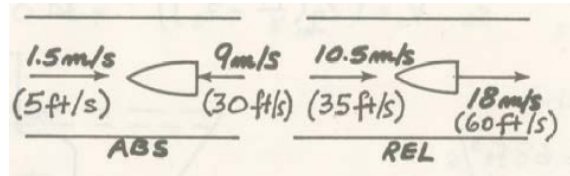 1.5m/s
(5ft/s)
9m/s
(30ft/s)
ABS
10.5m/s
(35ft/s)
18m/s
(60ft/s)
REL